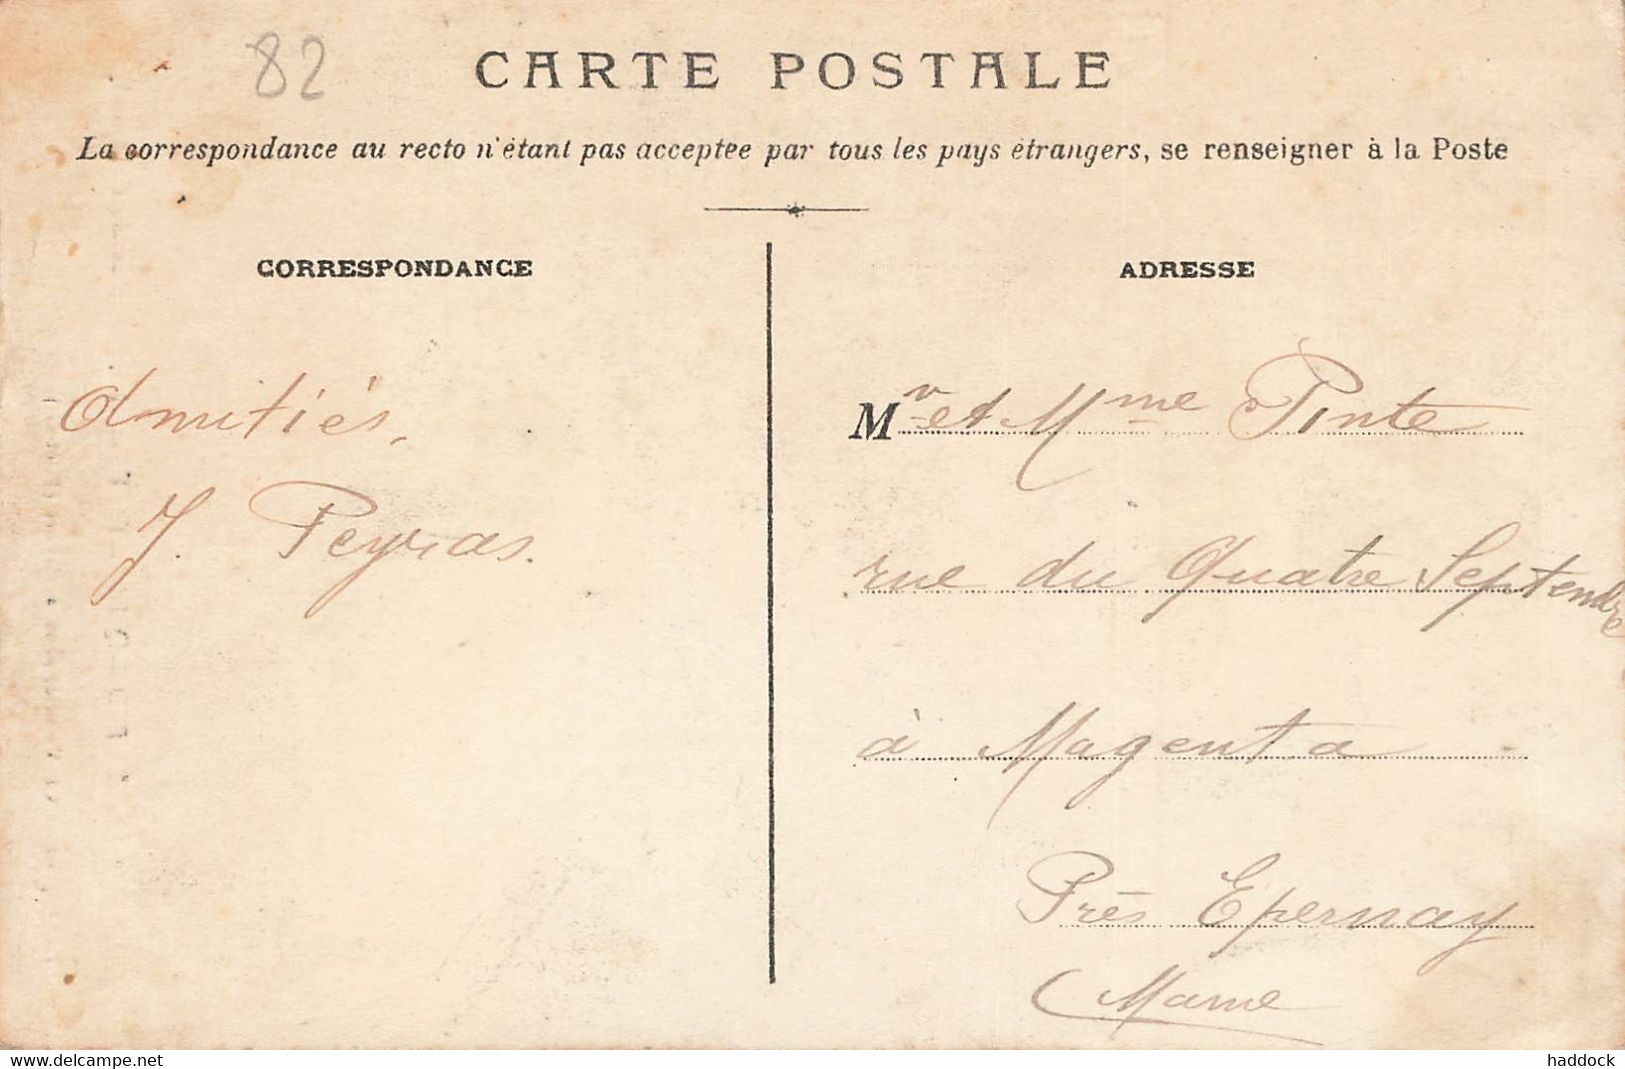 82
CARTE POSTALE
La correspondance au recto n'étant pas acceptée par tous les pays étrangers, se renseigner à la Poste
CORRESPONDANCE
Amitiés,
J. Peyras.
ADRESSE
Mr et Mme Pinte
rue du Quatre Septembre
à Magenta
Près Epernay
(Marne
www.delcampe.net
haddock